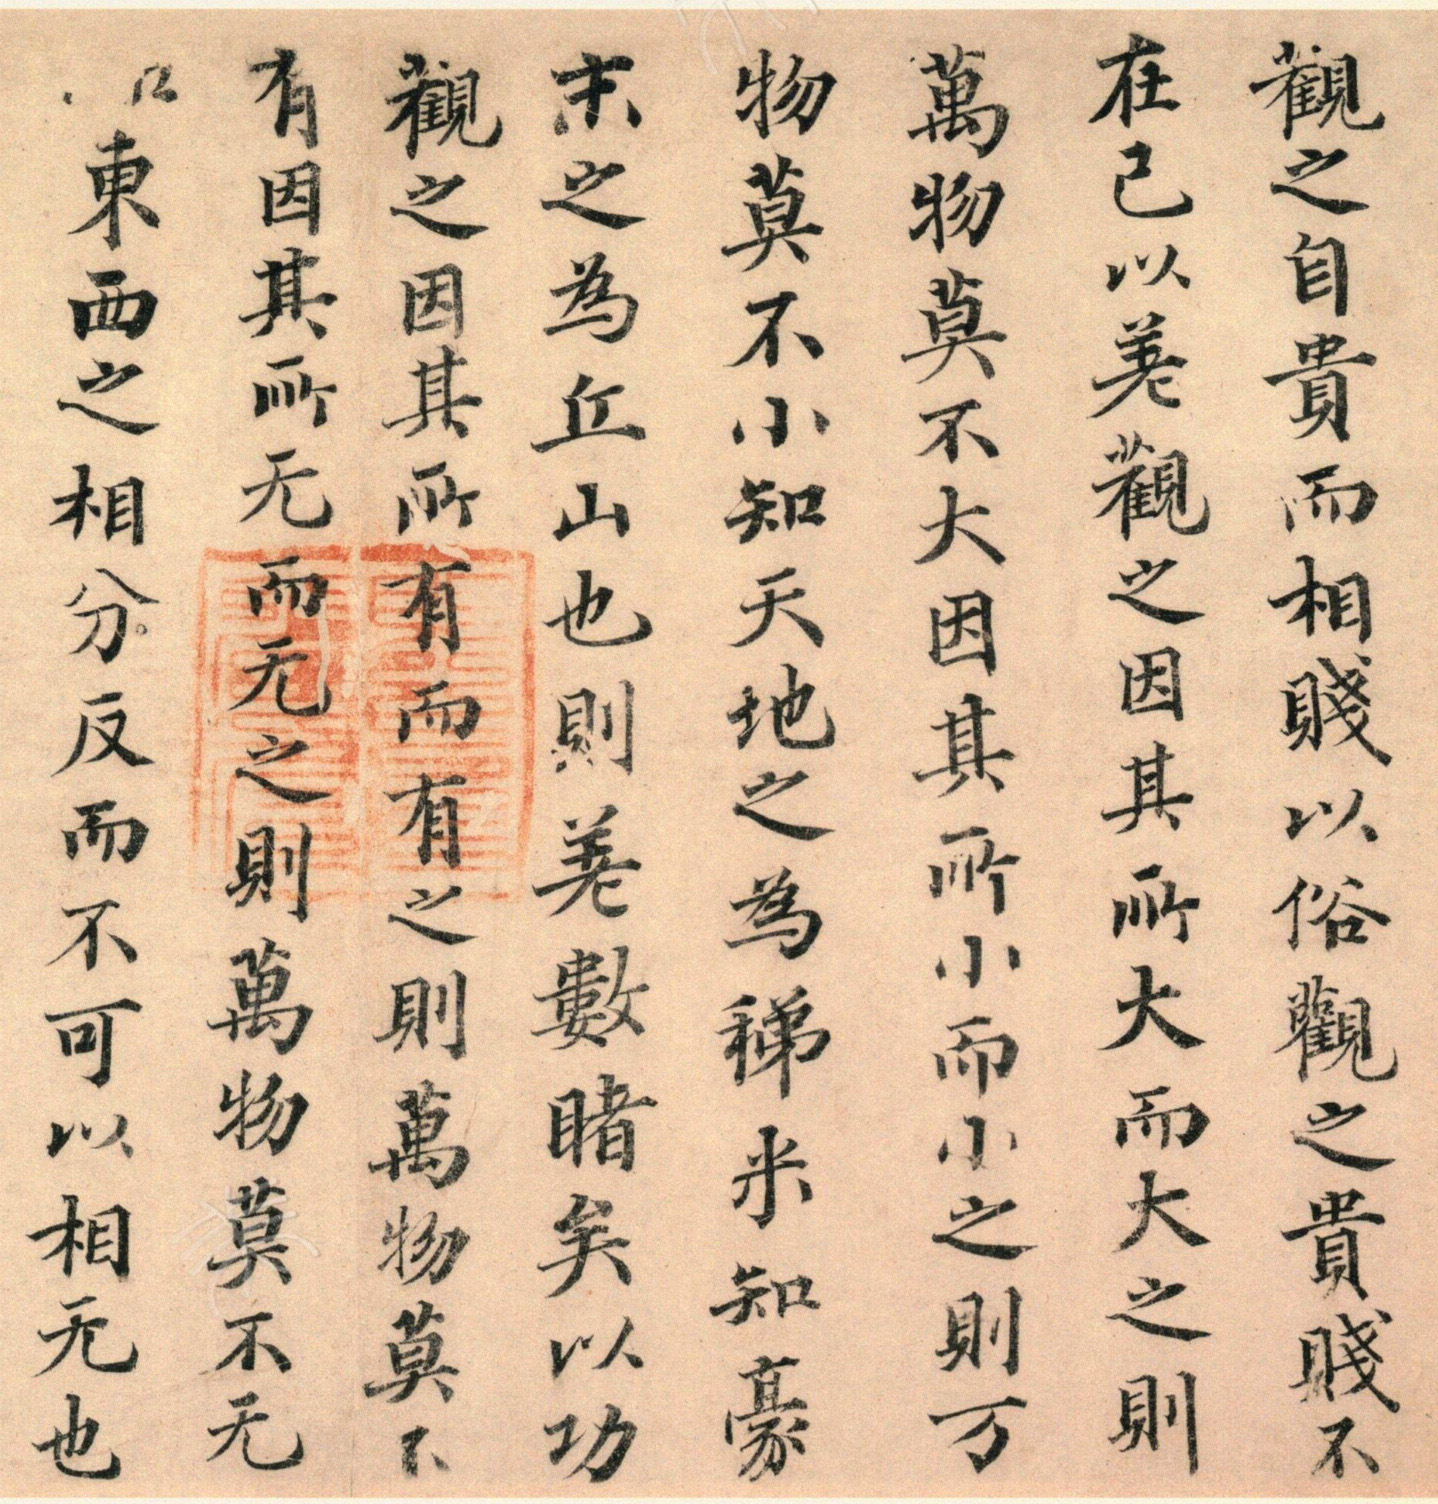 觀之自貴而相賤以俗觀之貴賤不
在己以差觀之因其所大而大之則
萬物莫不大因其所小而小之則万
物莫不小知天地之為稊米知豪
末之為丘山也則差數睹矣以功
觀之因其所有而有之則萬物莫不
有因其所无而无之則萬物莫不无
東西之相分反而不可以相无也